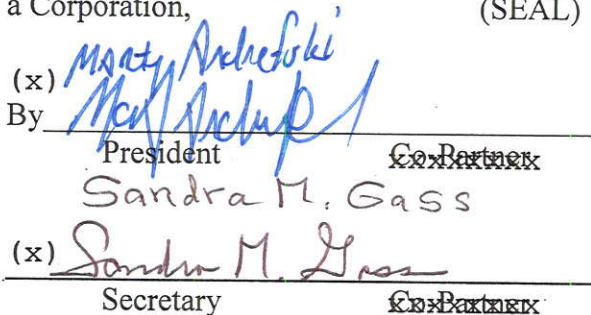 a Corporation, (SEAL)
(x) Marty
By
President Co-Partner
Sandra M. Gass
(x) Sandra M. Gass
Secretary Co-Partner